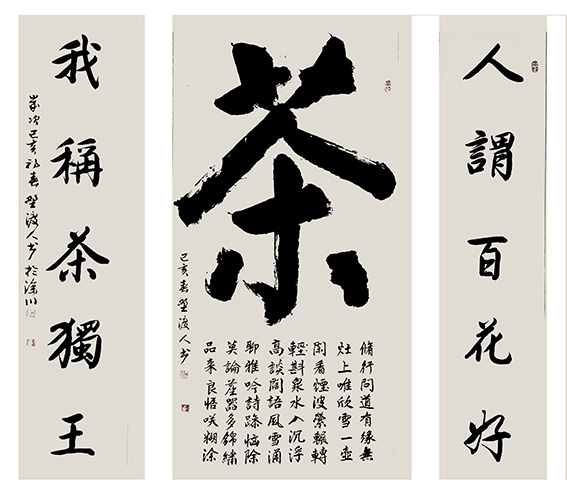 人謂百花好
茶
脩行問道有緣無
灶上唯欣雪一壺
閑看煙波縈輾轉
輕斟泉水入沉浮
高談闊語風雪涌
聊雅吟詩惱除
莫論器多錦繡
品来良悟咲糊涂
己亥春埜渡人书
我稱茶獨王
歲次己亥初春埜渡人书於滁川